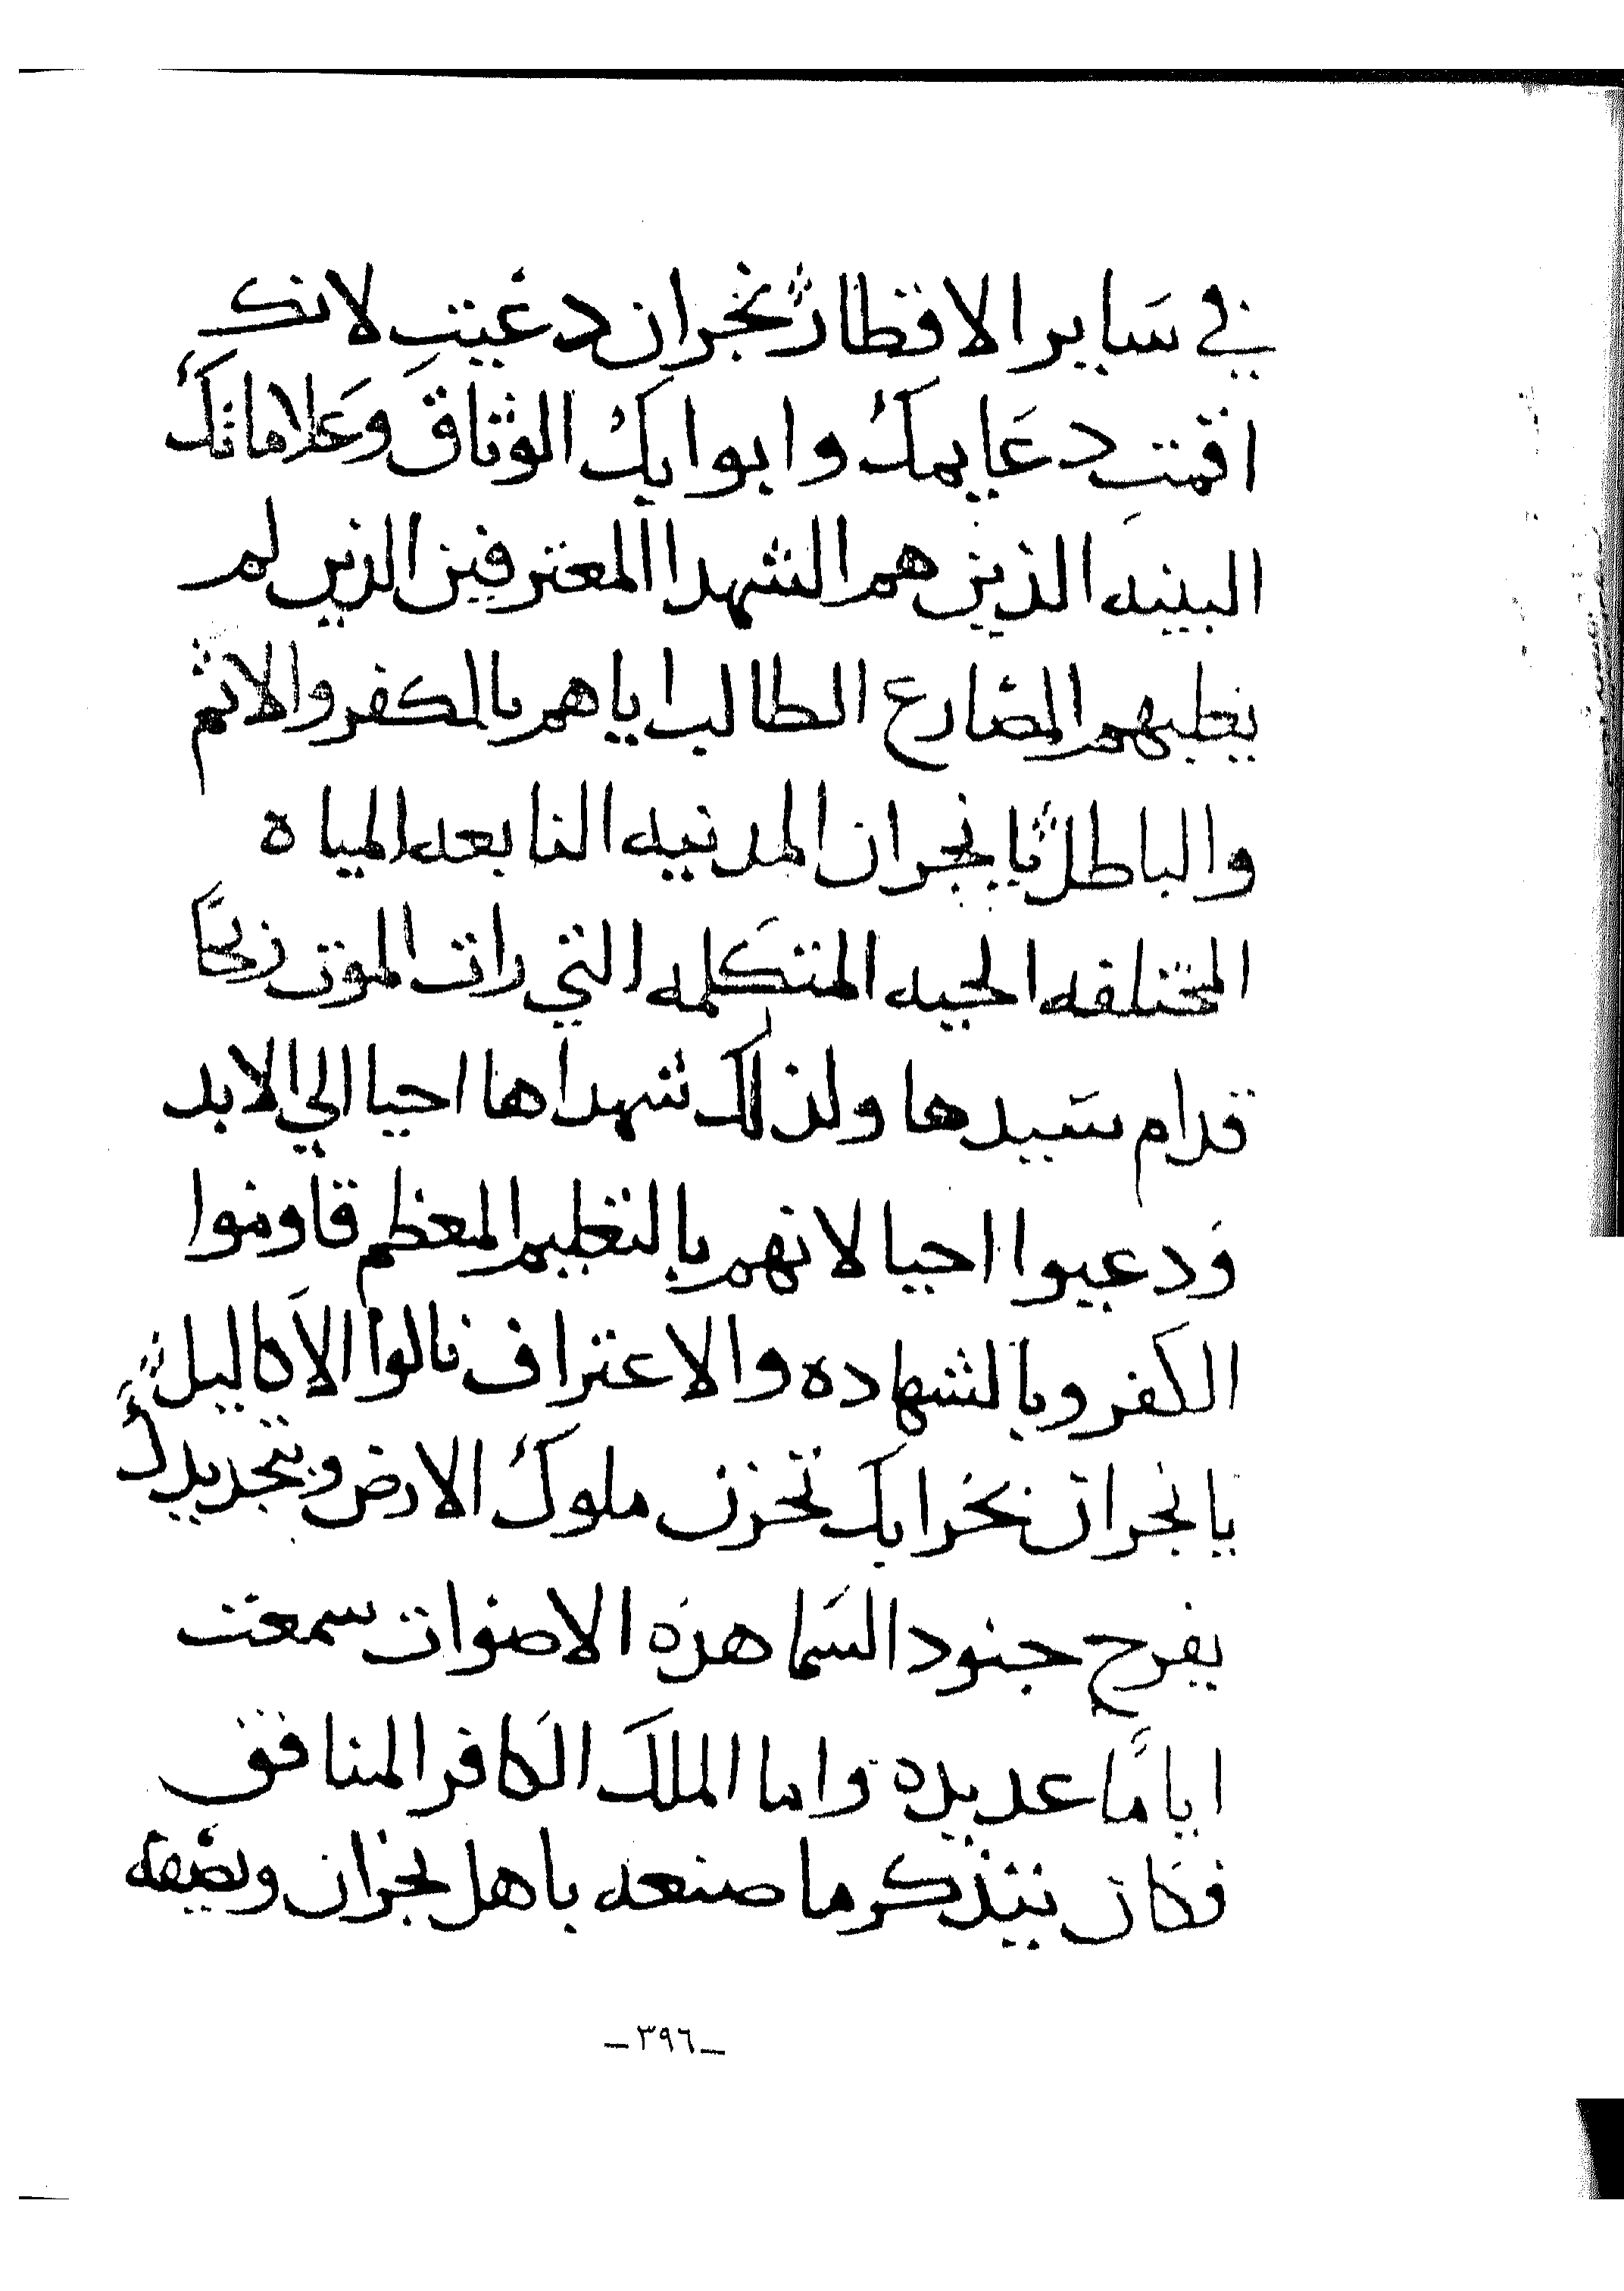 في سَاير الاقطار نجران دعيتِ لانك
اقمتِ دعَايمك وابوابك الوثاق وعَلاماتك
البينه الذين هم الشهدا المعترفين الذين لم
يغلبهم المصَارع الطالب اياهم بالكفر والاثم
والباطل يا نجران المدنيه النابعه المياه
المختلفه الحيه المتكلمه التي رات الموت رِبحًا
قدام سَيدها ولذلك شهداها احيا الي الابد
وَدعيوا احيا لانهم بالتعليم المعظم قاوموا
الكفر وبالشهاده والاعتراف نالوا الاكاليل
يا نجران بخَرابك تحزن ملوك الارض وبتجديدك
يفرح جنود السَما هذه الاصوات سمعت
ايامًا عديده واما الملك الكافر المنافق
فكان يتذكر ما صنعه باهل نجران ويصفه
_٣٩٦_